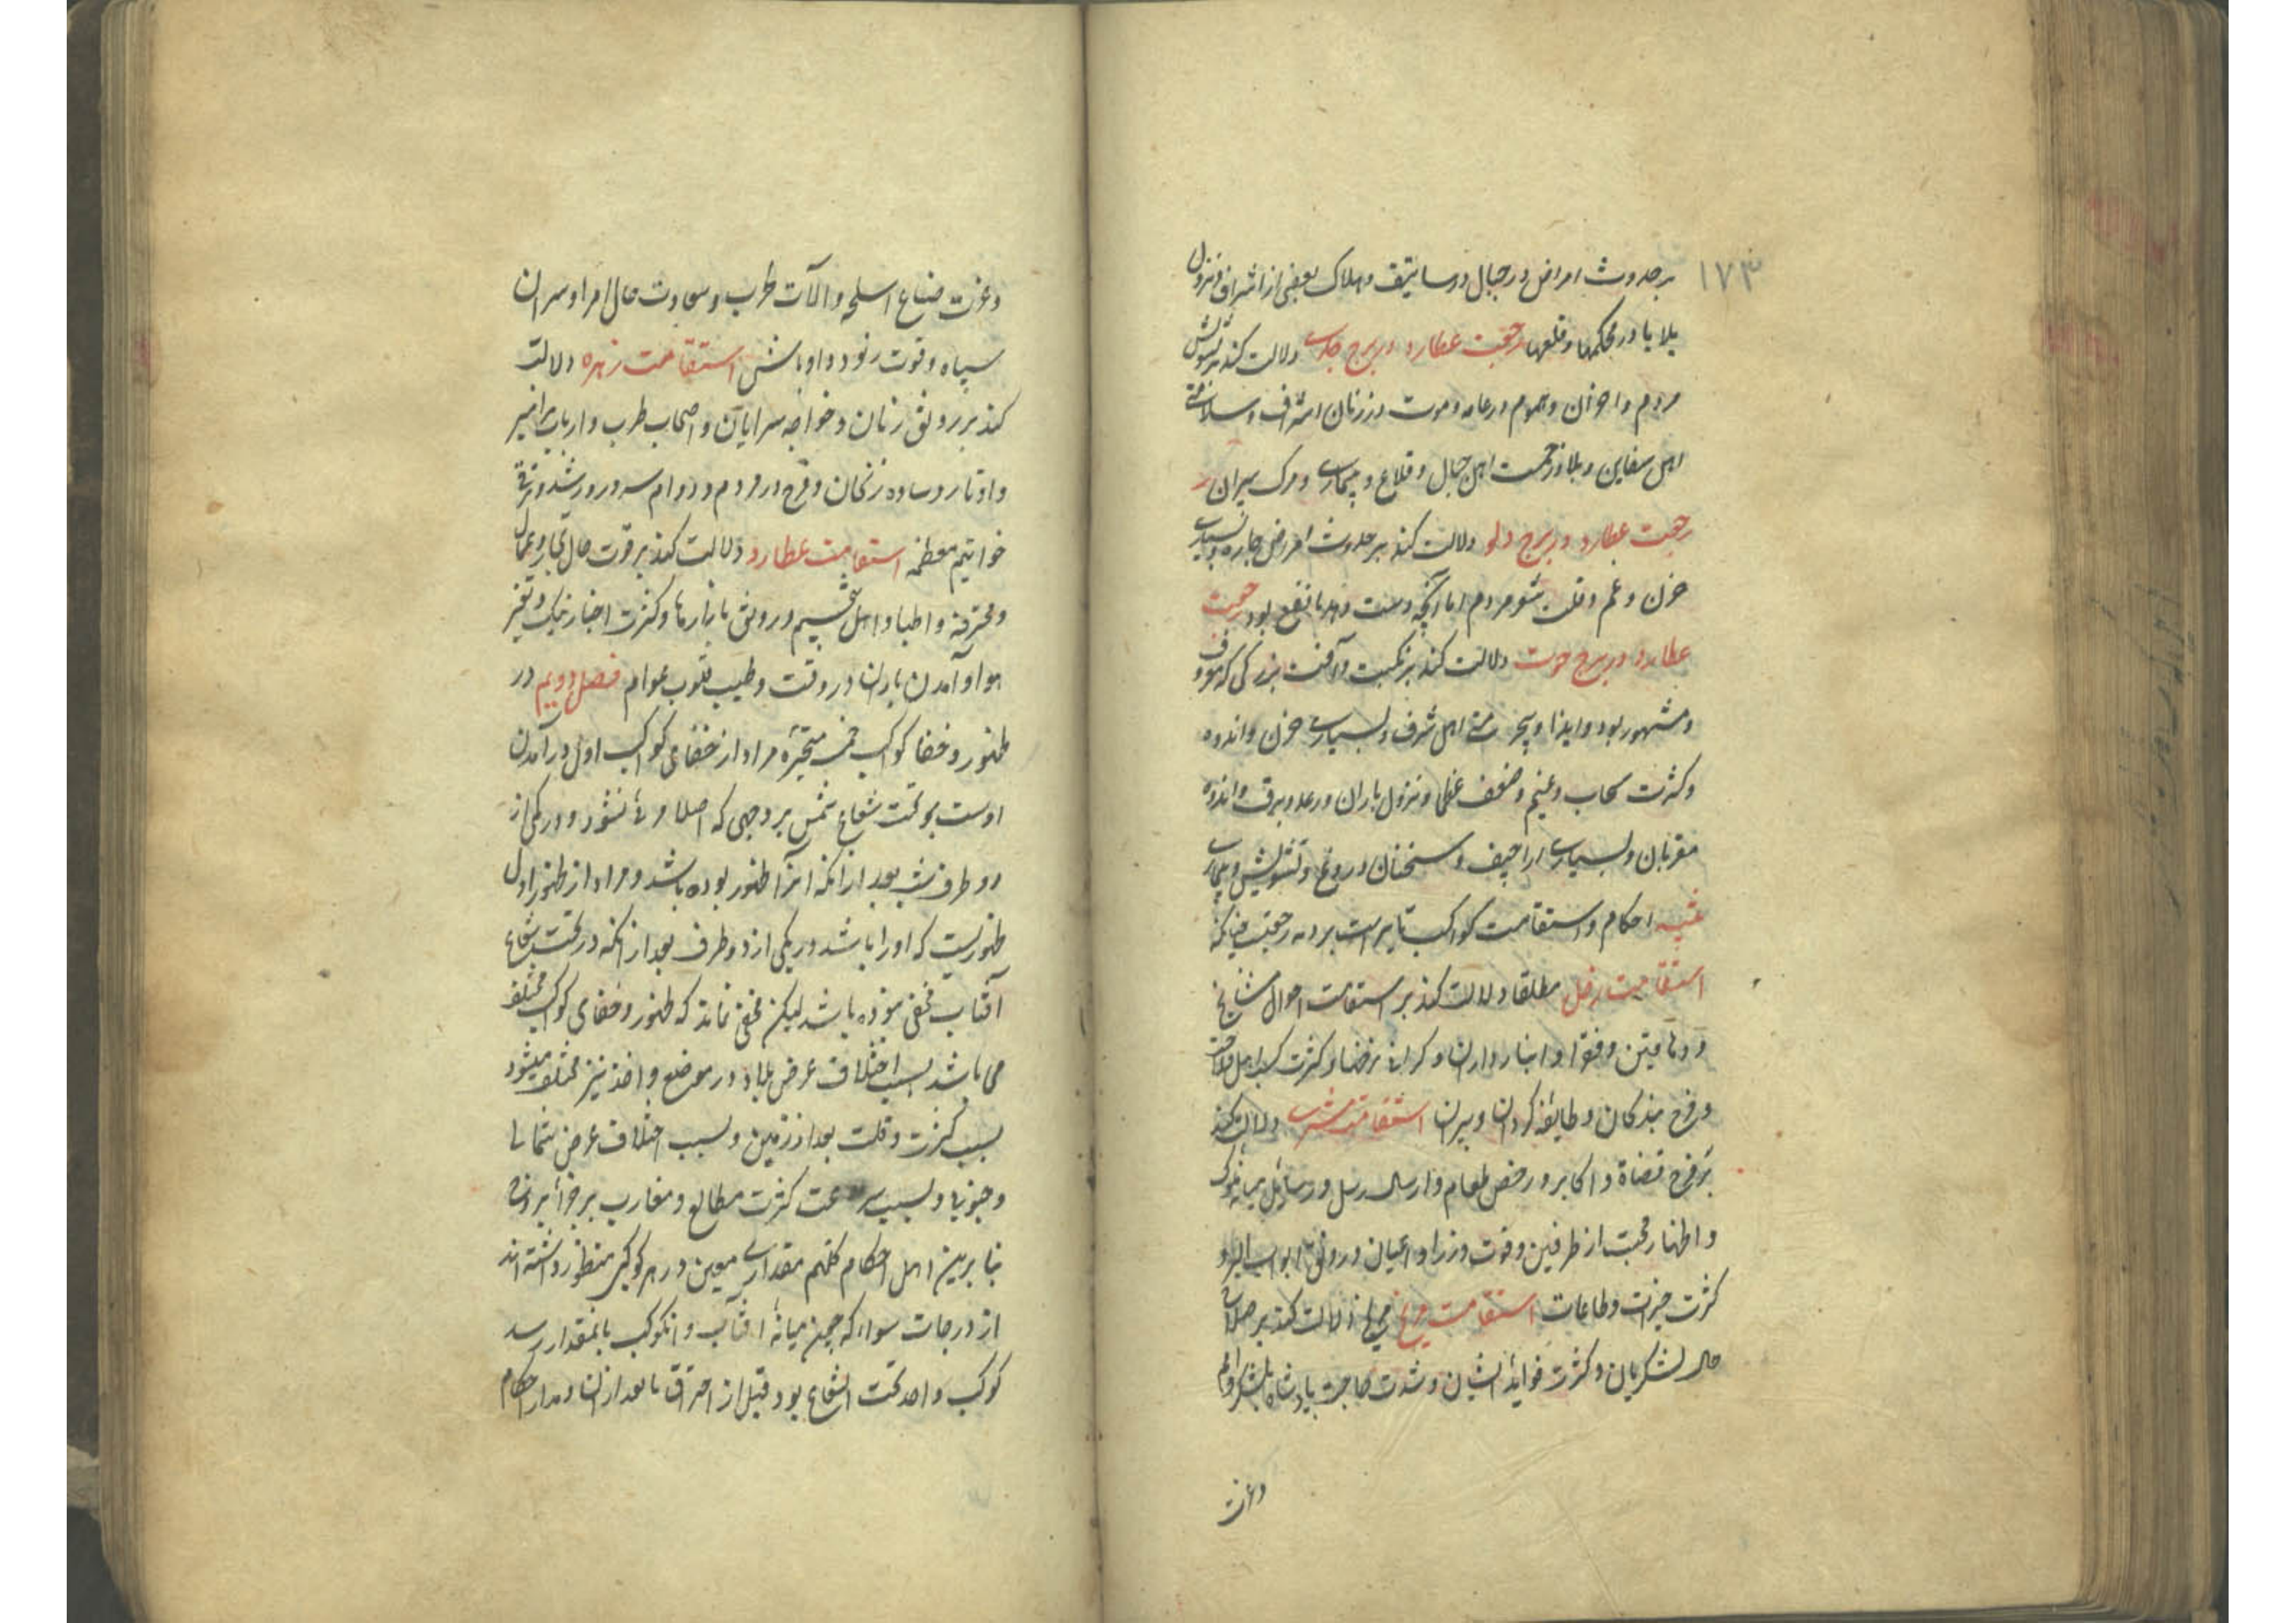 ۱۷۳
بر حدوث امراض در جبال و رساتیق و هلاک بعضی از اشراف و نزول
بلایا در محکمها و قلعها رجعت عطارد در برج جدی دلالت کند بر تشویش
مردم و احزان و هموم در عامه و موت در زنان اشراف و سلامتی
اهل سفاین و بلا و زحمت اهل جبال و قلاع و بیماری و مرک پیران
رجعت عطارد در برج دلو دلالت کند بر حدوث امراض حاره و بسیاری
حزن و غم و قلت مردم اما آنچه دست دهد با نفع بود رجعت
عطارد در برج حوت دلالت کند بر نکبت و آفت بزرگی که معروف
و مشهور بود و ایذا و اهل شرف و بسیاری حزن و اندوه
و کثرت سحاب و غیم و ضعف و نزول باران و رعد و برق و اندوه
مقربان و بسیاری اراجیف و سخنان دروغ و تشویش و بیماری
احکام و استقامت کواکب رجعت چنانکه
استقامت زحل مطلقا دلالت کند بر استقامت احوال مشایخ
و دهاقین و فقرا و انبارداران و کرانی نرخها و کثرت کسب اهل فلاحت
و فرح بندکان و طایفه کردان و پیران استقامت مشتری دلالت کند
بر فرح قضاة و اکابر و رخص طعام و ارسال رسل و رسایل میانه ملوک
و اظهار محبت از طرفین و قوت وزرا و اعیان و رونق ابواب البر و
کثرت خیرات و طاعات استقامت مریخ دلالت کند بر صلاح
حال لشکریان و کثرت فواید ایشان و شدت حاجت پادشاه بلشکر
و عزت
و عزت صناع اسلحه و آلات طرب و سعادت حال امرا و سران
سپاه و قوت رنود و اوباش استقامت زهره دلالت
کند بر رونق زنان و خواجه سرایان و اصحاب طرب و ارباب مزامیر
و اوتار و ساده زنخان و فرح در مردم و دوام سرور
خواتیم معظمه استقامت عطارد دلالت کند بر قوت حال تجار و عمال
و محترفه و اطبا و اهل تنجیم و رونق بازارها و کثرت اخبار نیک و تغیر
هوا و آمدن باران در وقت و طیب قلوب عوام فصل دویم در
ظهور و خفا کواکب خمسه متحیره مراد از خفای کواکب اول در آمدن
اوست بتحت شعاع شمس بر وجهی که اصلا مرئی نشود در یکی از
دو طرف شب بعد از آنکه آنرا ظهور بوده باشد و مراد از ظهور اول
ظهوریست که او را باشد در یکی از دو طرف بعد از آنکه در تحت شعاع
آفتاب مخفی بوده باشد لیکن مخفی نماند که ظهور و خفای کواکب مختلف
می باشد بسبب اختلاف عرض بلاد و در موضع واحد نیز مختلف میشود
بسبب کثرت و قلت بعد از زمین و بسبب اختلاف عرض شمالی
و جنوبی و بسبب سرعت کثرت مطالع و مغارب بر جزا
بنابرین اهل احکام کلهم مقداری معین در هر کوکبی منظور داشته اند
از درجات سواء که چون میانه آفتاب و آنکوکب بانمقدار رسد
کوکب واحد تحت الشعاع بود قبل از احتراق یا بعد از آن و مدار احکام